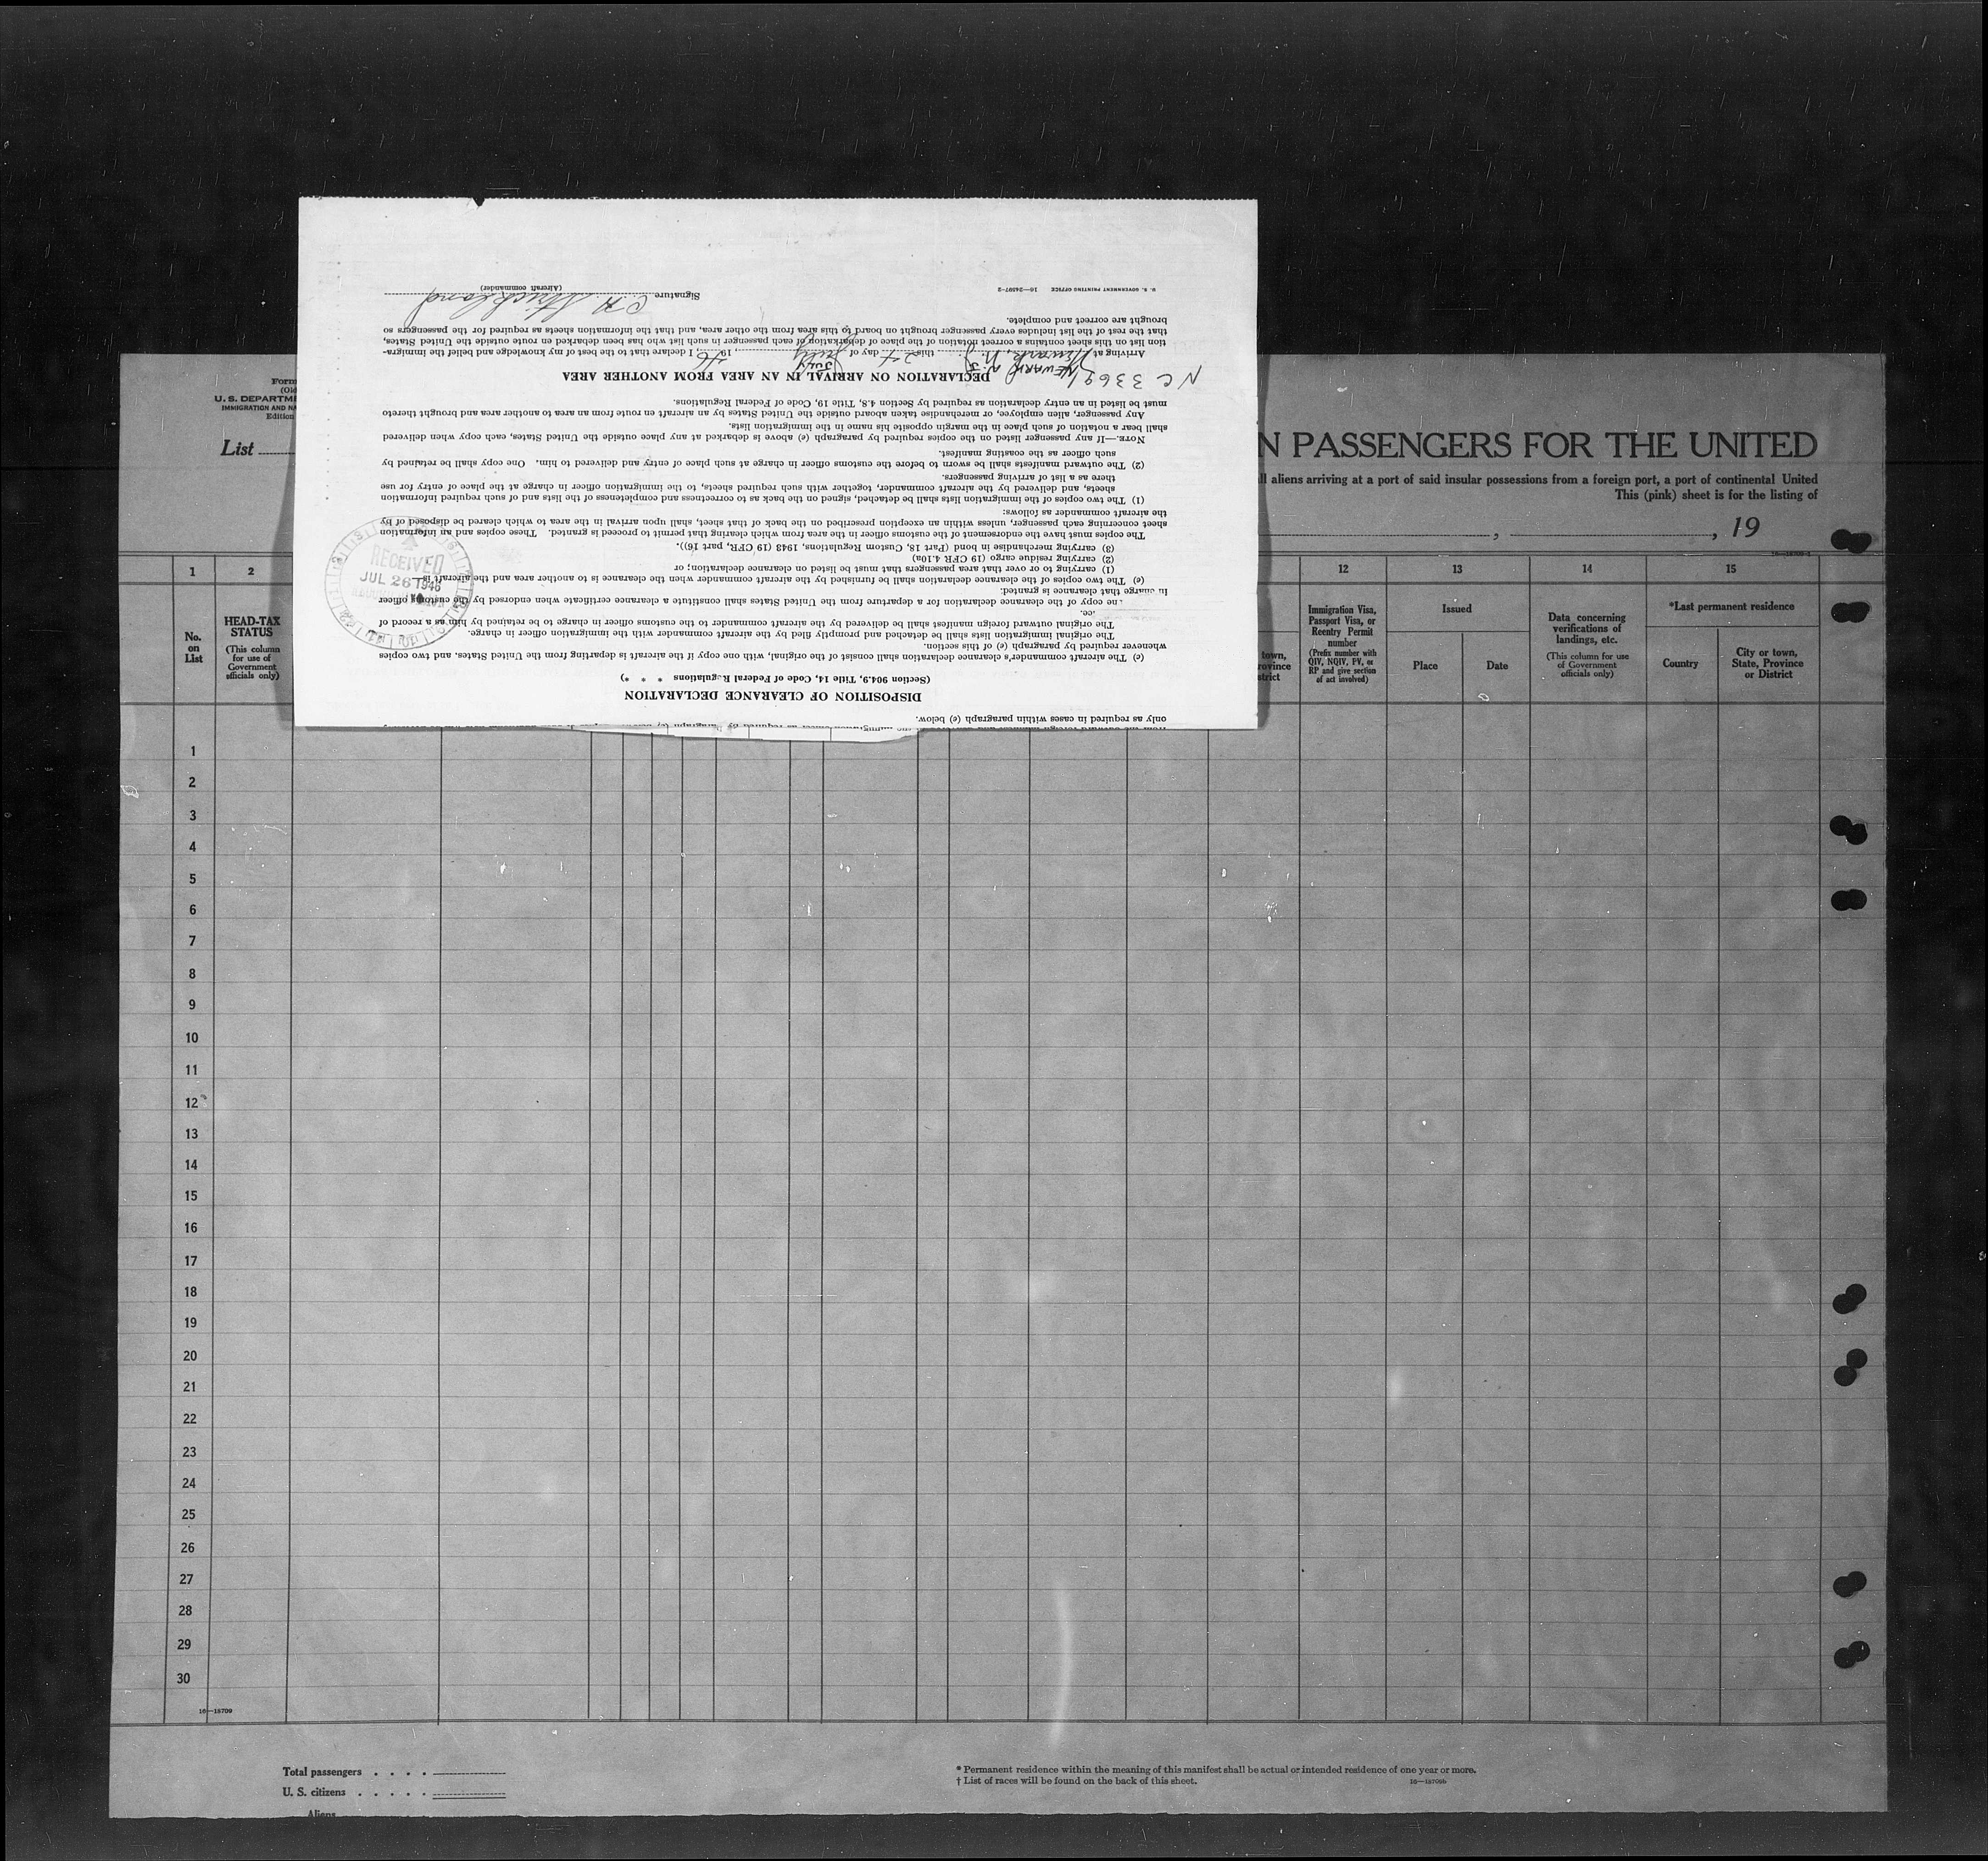 only as required in cases within paragraph (e) below.
DISPOSITION OF CLEARANCE DECLARATION
(Section 904.9, Title 14, Code of Federal Regulations * * *)
(c) The aircraft commander's clearance declaration shall consist of the original, with one copy if the aircraft is departing from the United States, and two copies
whenever required by paragraph (e) of this section.
The original immigration lists shall be detached and promptly filed by the aircraft commander with the immigration officer in charge.
The original outward foreign manifest shall be delivered by the aircraft commander to the customs officer in charge to be retained by him as a record of
ce.
ne copy of the clearance declaration for a departure from the United States shall constitute a clearance certificate when endorsed by the customs officer
in charge that clearance is granted:
(e) The two copies of the clearance declaration shall be furnished by the aircraft commander when the clearance is to another area and the aircraft is—
(1) carrying to or over that area passengers that must be listed on clearance declaration; or
(2) carrying residue cargo (19 CFR 4.10a)
(3) carrying merchandise in bond (Part 18, Custom Regulations, 1943 (19 CFR, part 16)).
The copies must have the endorsement of the customs officer in the area from which clearing that permit to proceed is granted. These copies and an information
sheet concerning each passenger, unless within an exception prescribed on the back of that sheet, shall upon arrival in the area to which cleared be disposed of by
the aircraft commander as follows:
(1) The two copies of the immigration lists shall be detached, signed on the back as to correctness and completeness of the lists and of such required information
sheets, and delivered by the aircraft commander, together with such required sheets, to the immigration officer in charge at the place of entry for use
there as a list of arriving passengers.
(2) The outward manifests shall be sworn to before the customs officer in charge at such place of entry and delivered to him. One copy shall be retained by
such officer as the coasting manifest.
NOTE.—If any passenger listed on the copies required by paragraph (e) above is debarked at any place outside the United States, each copy when delivered
shall bear a notation of such place in the margin opposite his name in the immigration lists.
Any passenger, alien employee, or merchandise taken aboard outside the United States by an aircraft en route from an area to another area and brought thereto
must be listed in an entry declaration as required by Section 4.8, Title 19, Code of Federal Regulations.
NC 33691
DECLARATION ON ARRIVAL IN AN AREA FROM ANOTHER AREA
NEWARK N. J. JULY
Arriving at Newark, N. J. this 24 day of July 1946, I declare that to the best of my knowledge and belief the immigra-
tion list on this sheet contains a correct notation of the place of debarkation of each passenger in such list who has been debarked en route outside the United States,
that the rest of the list includes every passenger brought on board to this area from the other area, and that the information sheets as required for the passengers so
brought are correct and complete.
Signature C. H. Strickland
(Aircraft commander)
U. S. GOVERNMENT PRINTING OFFICE 16—24597-2
RECEIVED
JUL 26 1946
Form
(Old
U. S. DEPARTME
IMMIGRATION AND NA
Edition
List
N PASSENGERS FOR THE UNITED
ll aliens arriving at a port of said insular possessions from a foreign port, a port of continental United
This (pink) sheet is for the listing of
, , 19
1 2 12 13 14 15
No. on List
HEAD-TAX STATUS
(This column for use of Government officials only)
town,
rovince
strict
Immigration Visa, Passport Visa, or Reentry Permit number
(Prefix number with QIV, NQIV, PV, or RP and give section of act involved)
Issued
Place
Date
Data concerning verifications of landings, etc.
(This column for use of Government officials only)
*Last permanent residence
Country
City or town, State, Province or District
1
2
3
4
5
6
7
8
9
10
11
12
13
14
15
16
17
18
19
20
21
22
23
24
25
26
27
28
29
30
16—18709
Total passengers . . . .
U. S. citizens . . . . .
Aliens
* Permanent residence within the meaning of this manifest shall be actual or intended residence of one year or more.
† List of races will be found on the back of this sheet.
16—18709b